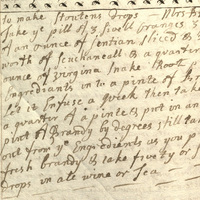 to make Stoctens drops Mrs
take ye pill of 3 Sivell Oranges 3
of an ounce of Gentian sliced &
worth of & a quarter
ounce of Virgina Snake Root
Ingredients in to a pinte of
let it Infuse a week then take
a quarter of a pinte & put in an
pint of Brandy by degrees still
out from ye Engredients as you
fresh brandy & take fivety or
drops in ale wine or Tea